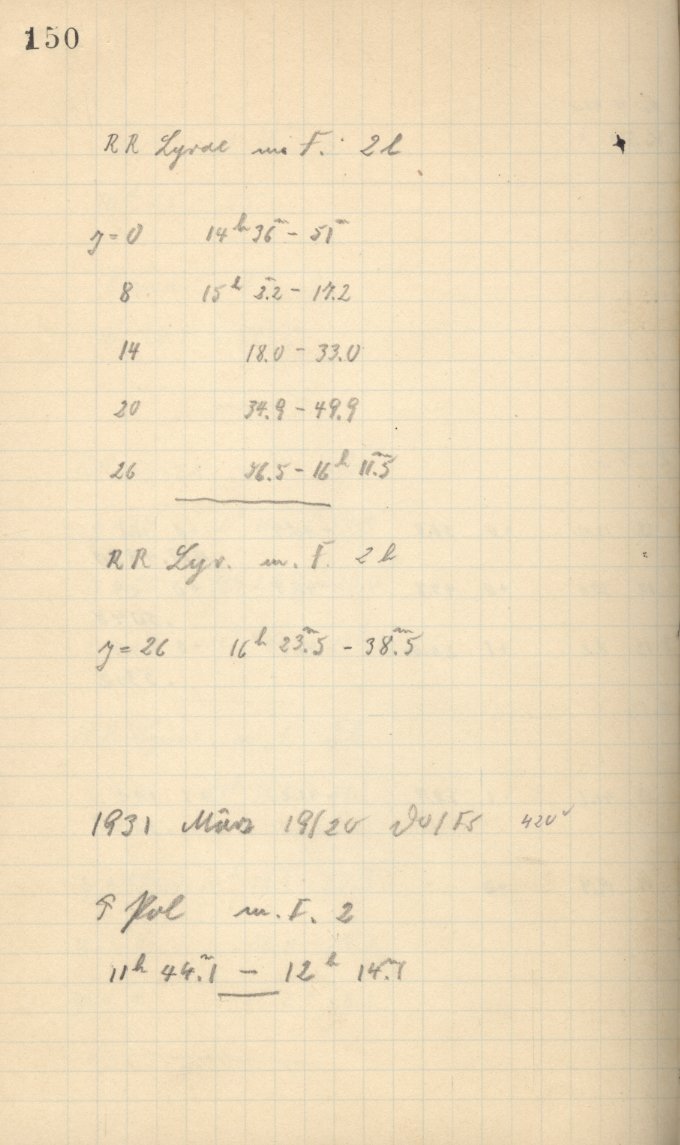 150
RR Lyrae m. F. 2b
y = 0 14h 36m – 51m
8 15h 2m.2 – 17.2
14 18.0 – 33.0
20 34.9 – 49.9
26 56.5 – 16h 11m.5
RR Lyr. m. F. 2b
y = 26 16h 23m.5 – 38m.5
1931 März 19/20 Do/Fr 420v
Pol m. F. 2
11h 44m.1 – 12h 14m.1